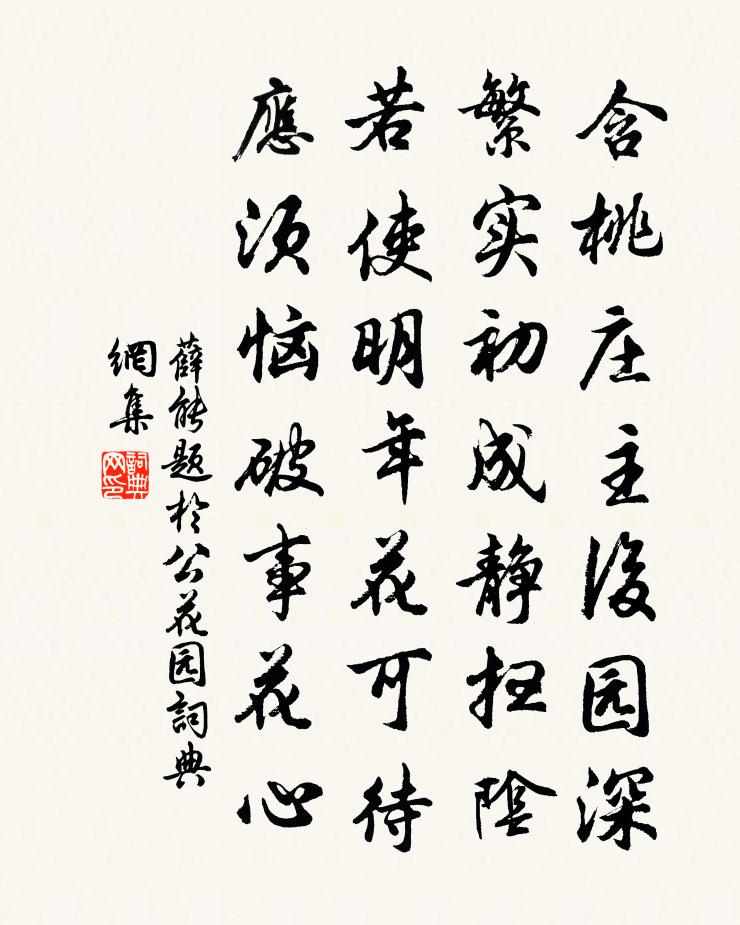 含桃庄主後园深
繁实初成静扫陰
若使明年花可待
應须恼破事花心
薛能题於公花园詞典
網集
詞典
网印